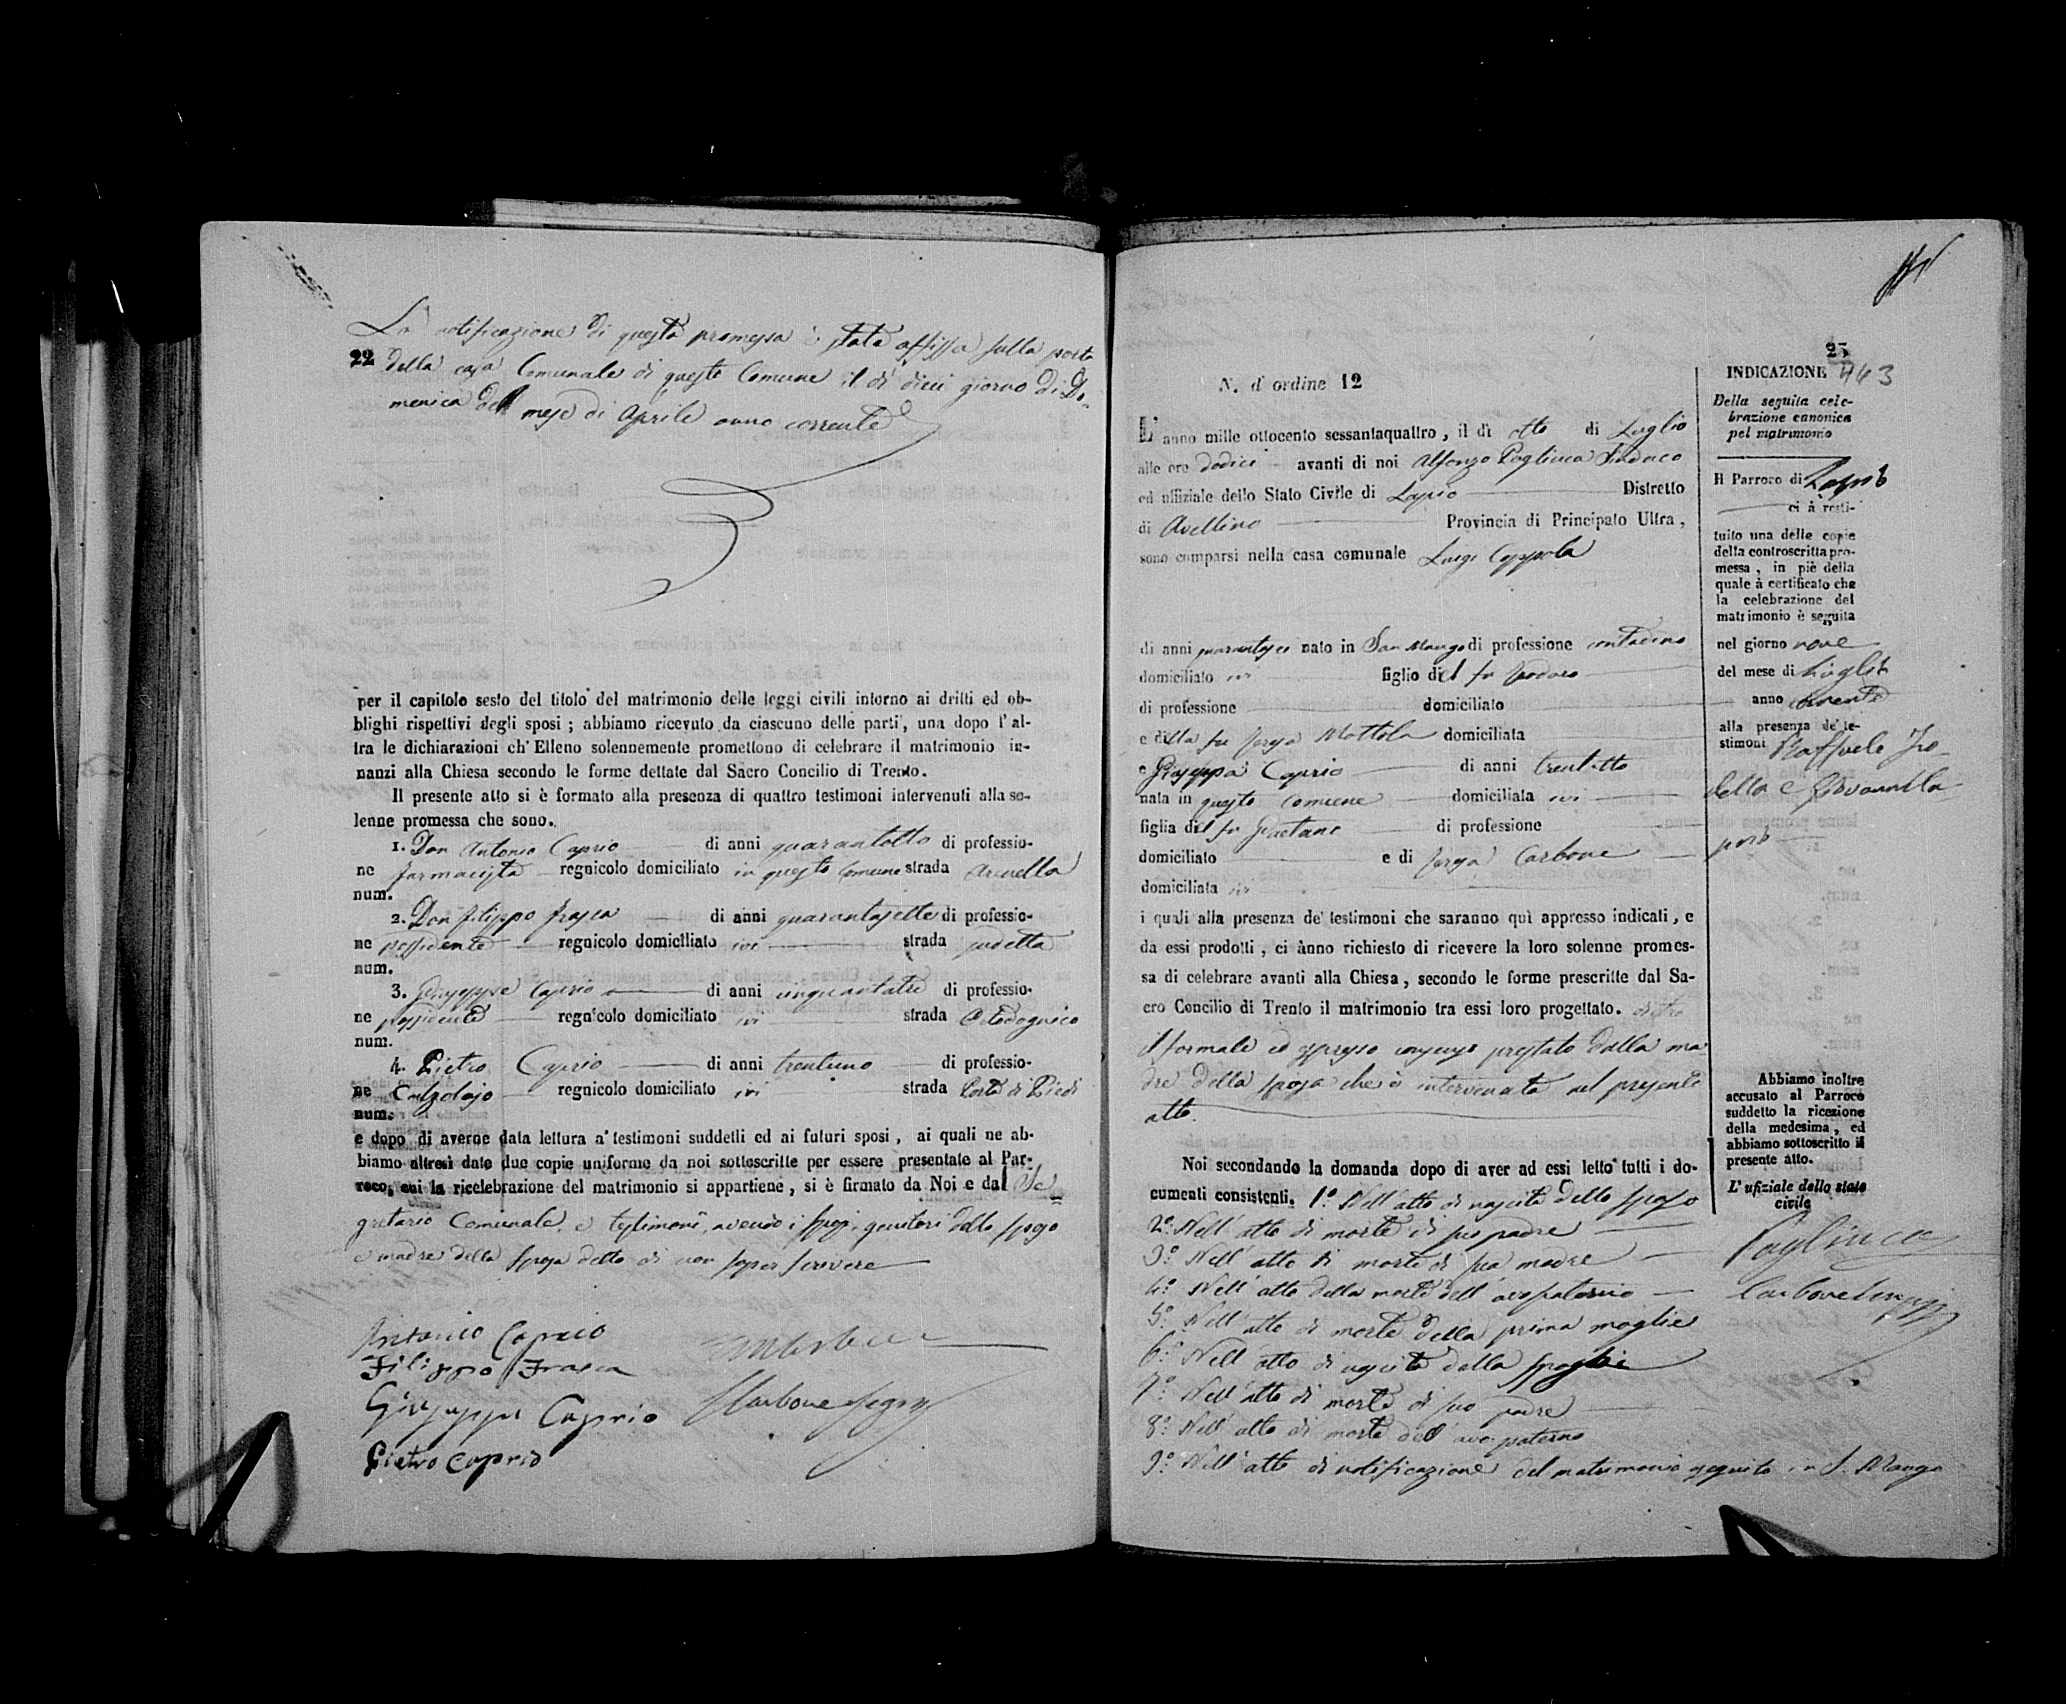 La notificazione di questa promessa è stata affissa sulla porta
22 della casa Comunale di questo Comune il dì dieci giorno di Do-
menica del mese di Aprile anno corrente
per il capitolo sesto del titolo del matrimonio delle leggi civili intorno ai dritti ed ob-
blighi rispettivi degli sposi ; abbiamo ricevuto da ciascuno delle parti, una dopo l'al-
tra le dichiarazioni ch'Elleno solennemente promettono di celebrare il matrimonio in-
nanzi alla Chiesa secondo le forme dettate dal Sacro Concilio di Trento.
Il presente atto si è formato alla presenza di quattro testimoni intervenuti alla so-
lenne promessa che sono.
1. Don Antonio Caprio di anni quarantotto di professio-
ne farmacista regnicolo domiciliato in questo Comune strada Arenella
num.
2. Don Filippo Frasca di anni quarantasette di professio-
ne possidente regnicolo domiciliato ivi strada
num.
3. Giuseppe Caprio di anni cinquantatre di professio-
ne possidente regnicolo domiciliato ivi strada
num.
4. Pietro Caprio di anni trentuno di professio-
ne Calzolajo regnicolo domiciliato ivi strada Corte di Piedi
num.
e dopo di averne data lettura a' testimoni suddetti ed ai futuri sposi, ai quali ne ab-
biamo altresì dato due copie uniforme da noi sottoscritte per essere presentate al Par-
roco, cui la ricelebrazione del matrimonio si appartiene, si è firmato da Noi e dal Se-
gretario Comunale, e testimoni, avendo i sposi, genitori dello sposo
e madre della sposa detto di non saper scrivere
Antonio Caprio
Filippo Frasca
Giuseppe Caprio Carbone Segr
Pietro Caprio
23
443
N. d'ordine 12
L'anno mille ottocento sessantaquattro, il dì otto di Luglio
alle ore dodici avanti di noi Alfonzo Pagliuca Sindaco
ed uffiziale dello Stato Civile di Lapio Distretto
di Avellino Provincia di Principato Ultra,
sono comparsi nella casa comunale Luigi Coppola
di anni quarantasei nato in San Mango di professione contadino
domiciliato ivi figlio del fu
di professione domiciliato
e della fu Teresa Mottola domiciliata
e Giuseppa Caprio di anni trentotto
nata in questo Comune domiciliata ivi
figlia del fu Gaetano di professione
domiciliato e di Teresa Carbone
domiciliata ivi
i quali alla presenza de' testimoni che saranno quì appresso indicati, e
da essi prodotti, ci ànno richiesto di ricevere la loro solenne promes-
sa di celebrare avanti alla Chiesa, secondo le forme prescritte dal Sa-
cro Concilio di Trento il matrimonio tra essi loro progettato. dietro
il formale ed espresso consenso prestato dalla ma
dre della sposa che è intervenuta nel presente
atto.
Noi secondando la domanda dopo di aver ad essi letto tutti i do-
cumenti consistenti. 1.º Nell'atto di nascita dello sposo
2.º Nell'atto di morte di suo padre
3.º Nell'atto di morte di sua madre
4.º Nell'atto della morte dell'avo paterno
5.º Nell'atto di morte della prima moglie
6.º Nell'atto di nascita della sposa
7.º Nell'atto di morte di suo padre
8.º Nell'atto di morte dell'avo paterno
9.º Nell'atto di notificazione del matrimonio eseguito in S. Mango
INDICAZIONE
Della seguita cele-
brazione canonica
pel matrimonio
Il Parroco di Lapio
ci à resti-
tuito una delle copie
della controscritta pro-
messa, in piè della
quale à certificato che
la celebrazione del
matrimonio è seguita
nel giorno nove
del mese di Luglio
anno corrente
alla presenza de' te-
stimoni Raffaele Io-
della e
Abbiamo inoltre
accusato al Parroco
suddetto la ricezione
della medesima, ed
abbiamo sottoscritto il
presente atto.
L'ufiziale dello stato
civile
Pagliuca
Carbone Segr